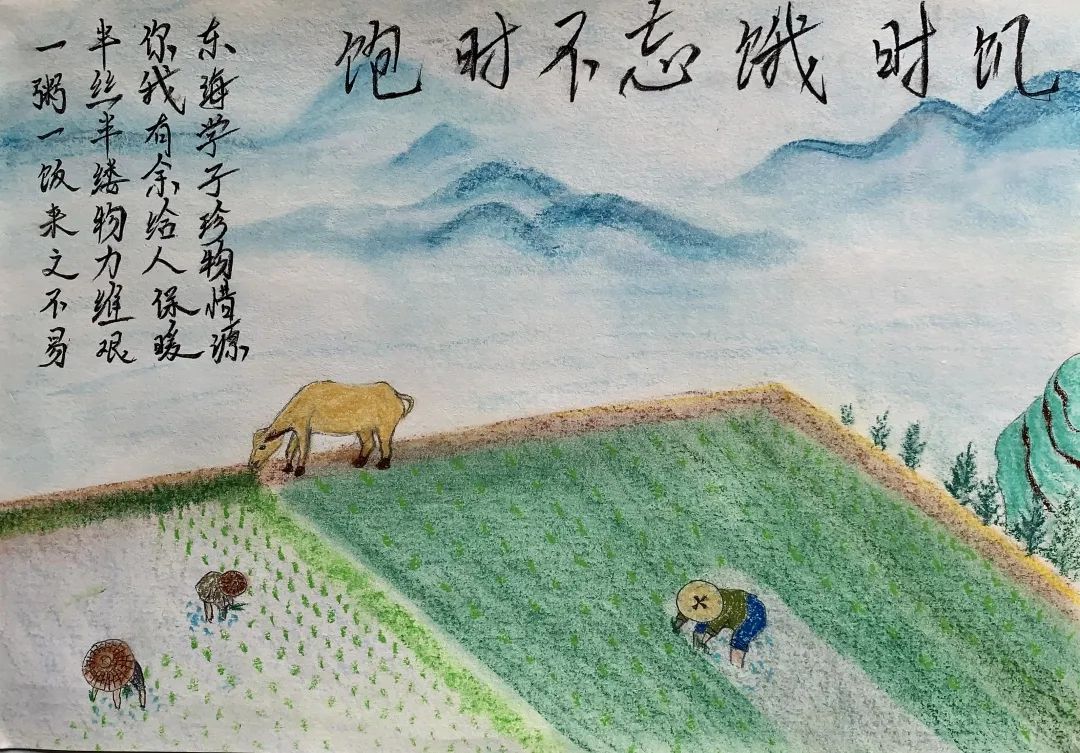 饱时不忘饿时饥
东海学子珍物惜源
你我有余给人保暖
半丝半缕物力维艰
一粥一饭来之不易